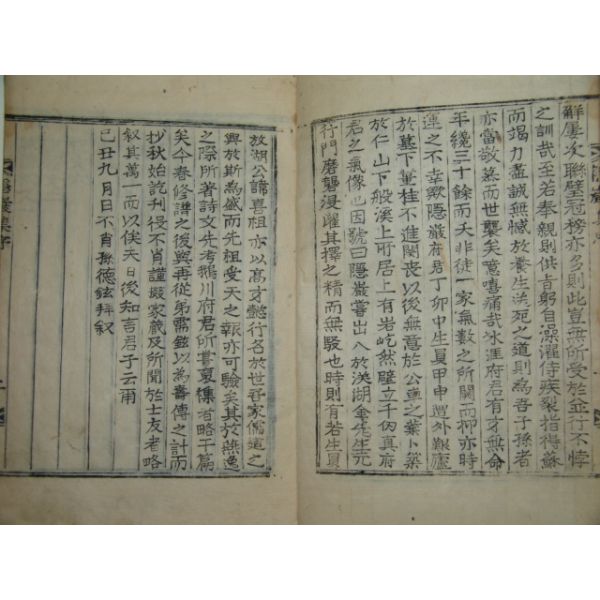 解屢次聯璧冠榜亦多則此豈無所受於並行不悖
之訓哉至若奉親則供旨躬自澡濯侍疾裂指得蘇
而竭力盡誠無憾於養生送死之道則為吾子孫者
亦當敬慕而世襲矣噫嘻痛哉氷涯府君有才無命
年纔三十餘而夭非徒一家氣數之所關而抑亦時
運之不幸歟隱巖府君丁卯中生員甲申遭外艱廬
於墓下筆桂不進闋喪以後無意於公車之業卜築
於仁山下般溪上所居上有岩屹然壁立千仞真府
君之氣像也因號曰隱巖嘗出入於渼湖金先生元
行門磨礱浸灌其擇之精而無駁也時則有若生員
放湖公諱喜祖亦以高才懿行名於世吾家儒道之
興於斯為盛而先祖受天之報亦可驗矣其於燕逸
之際所著詩文先考鵝川府君所甞裒稡者略干篇
矣今春修譜之後與再從弟需鉉以為壽傳之計而
抄秋始訖刊役不肖謹掇家藏及所聞於士友者略
叙其萬一而以俟天日後知言君子云爾
己丑九月日不肖孫德鉉拜叙